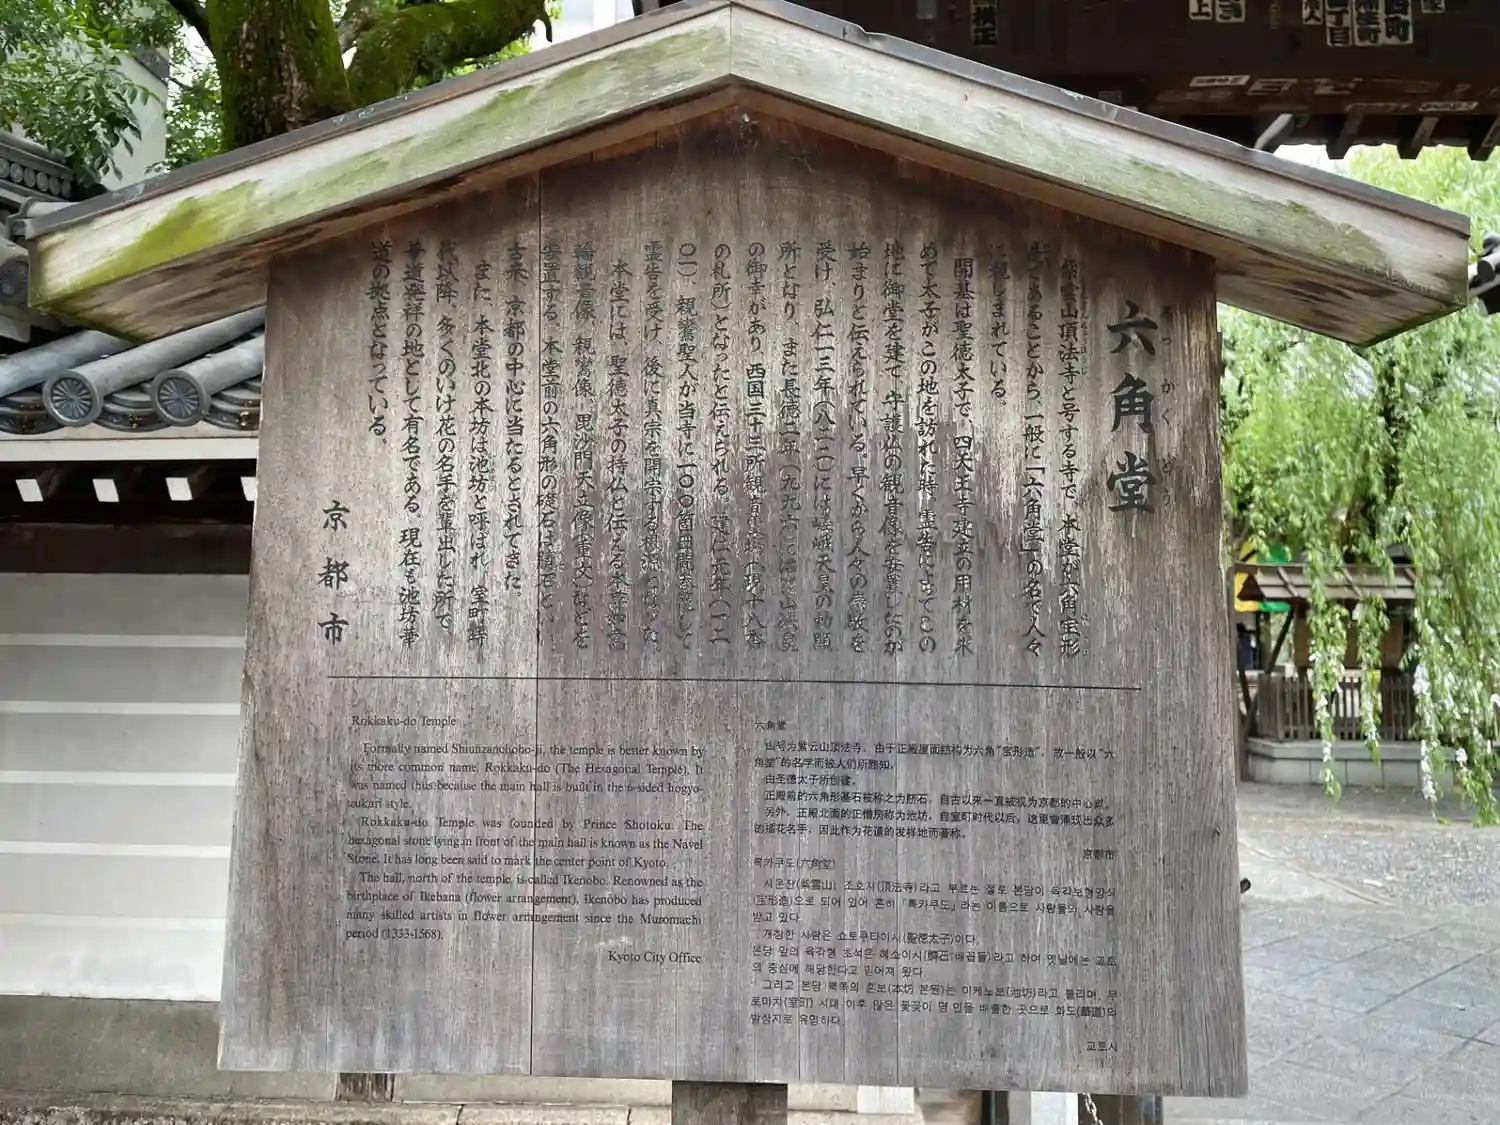 六角堂
ろっかくどう
紫雲山頂法寺と号する寺で、本堂が六角宝形
造であることから、一般に「六角堂」の名で人々
に親しまれている。
開基は聖徳太子で、四天王寺建立の用材を求
めて太子がこの地を訪れた時、霊告によってこの
地に御堂を建て、守護仏の観音像を安置したのが
始まりと伝えられている。早くから人々の崇敬を
受け、弘仁一三年(八二二)には嵯峨天皇の勅願
所となり、また長徳二年(九九六)には花山法皇
の御幸があり、西国三十三所観音霊場(現十八番
の札所)となったと伝えられる。建仁元年(一二
〇一)、親鸞聖人が当寺に一〇〇箇日間参籠して
霊告を受け、後に真宗を開宗する根源となった。
本堂には、聖徳太子の持仏と伝える本尊如意
輪観音像、親鸞像、毘沙門天立像(重文)などを
安置する。本堂前の六角形の礎石は臍石といい、
古来、京都の中心に当たるとされてきた。
また、本堂北の本坊は池坊と呼ばれ、室町時
代以降、多くのいけ花の名手を輩出した所で、
華道発祥の地として有名である。現在も池坊華
道の拠点となっている。
京都市
Rokkaku-do Temple
Formally named Shiunzanchoho-ji, the temple is better known by
its more common name, Rokkaku-do (The Hexagonal Temple). It
was named thus because the main hall is built in the 6-sided hogyo-
tsukuri style.
Rokkaku-do Temple was founded by Prince Shotoku. The
hexagonal stone lying in front of the main hall is known as the Navel
Stone. It has long been said to mark the center point of Kyoto.
The hall, north of the temple, is called Ikenobo. Renowned as the
birthplace of Ikebana (flower arrangement), Ikenobo has produced
many skilled artists in flower arrangement since the Muromachi
period (1333-1568).
Kyoto City Office
六角堂
山号为紫云山顶法寺。由于正殿屋面结构为六角“宝形造”，故一般以“六
角堂”的名字而被人们所熟知。
由圣德太子所创建。
正殿前的六角形基石被称之为脐石，自古以来一直被视为京都的中心点。
另外，正殿北面的正僧房称为池坊，自室町时代以后，这里曾涌现出众多
的插花名手，因此作为花道的发祥地而著称。
京都市
록카쿠도(六角堂)
시운잔(紫雲山) 조호지(頂法寺)라고 부르는 절로 본당이 육각보형양식
(宝形造)으로 되어 있어 흔히 「록카쿠도」라는 이름으로 사람들의 사랑을
받고 있다.
개창한 사람은 쇼토쿠타이시(聖徳太子)이다.
본당 앞의 육각형 초석은 헤소이시(臍石:배꼽돌)라고 하여 옛날에는 교토
의 중심에 해당한다고 믿어져 왔다.
그리고 본당 북쪽의 혼보(本坊 본원)는 이케노보(池坊)라고 불리며, 무
로마치(室町) 시대 이후 많은 꽃꽂이 명인을 배출한 곳으로 화도(華道)의
발상지로 유명하다.
교토시